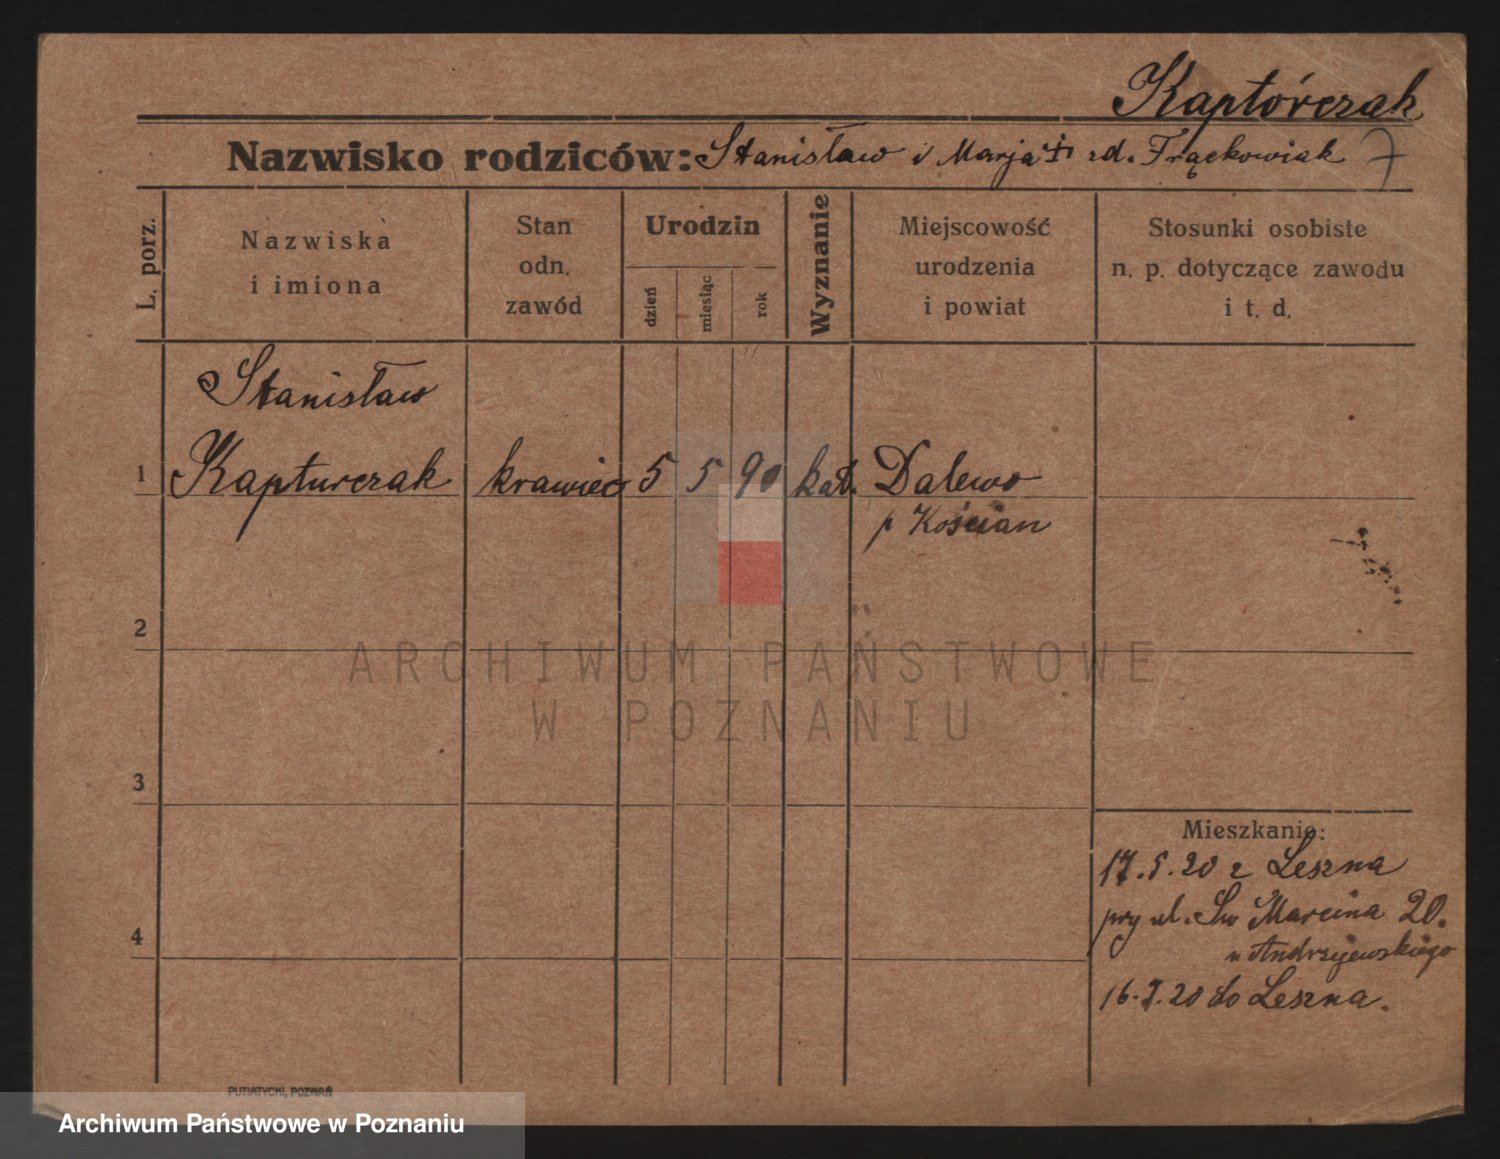 Kaptórczak
Nazwisko rodziców: Stanisław i Marja zd. Frąckowiak 7
L. porz.
Nazwiska
i imiona
Stan
odn.
zawód
Urodzin
dzień
miesiąc
rok
Wyznanie
Miejscowość
urodzenia
i powiat
Stosunki osobiste
n. p. dotyczące zawodu
i t. d.
Stanisław
1 Kapturczak krawiec 5 5 90 kat. Dalewo
p Kościan
2
ARCHIWUM PAŃSTWOWE
W POZNANIU
3
Mieszkanie:
17.5.20 z Leszna
pry ul. Św Marcina 20.
4
u Andrzejewskiego
16.7.20 do Leszna.
PUTIATYCKI, POZNAŃ
Archiwum Państwowe w Poznaniu